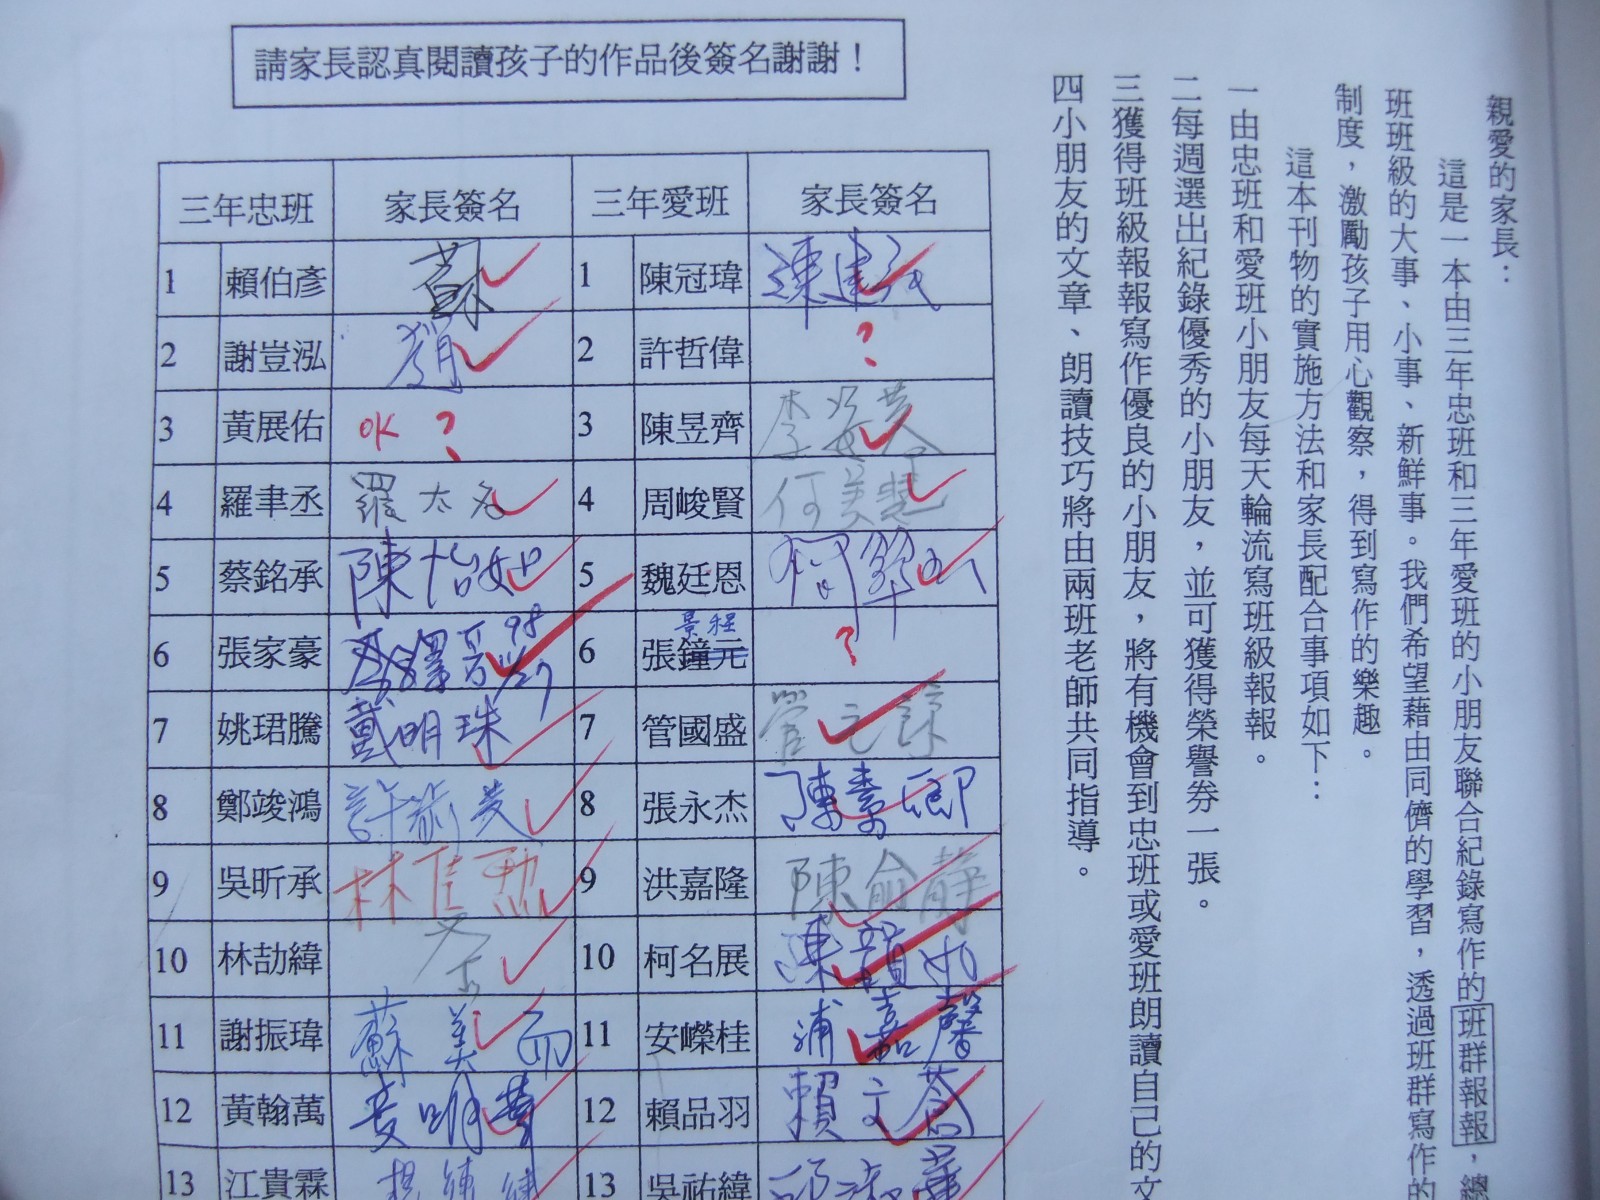 請家長認真閱讀孩子的作品後簽名謝謝！
親愛的家長：
這是一本由三年忠班和三年愛班的小朋友聯合紀錄寫作的班群報報，總
班班級的大事、小事、新鮮事。我們希望藉由同儕的學習，透過班群寫作的
制度，激勵孩子用心觀察，得到寫作的樂趣。
這本刊物的實施方法和家長配合事項如下：
一由忠班和愛班小朋友每天輪流寫班級報報。
二每週選出紀錄優秀的小朋友，並可獲得榮譽券一張。
三獲得班級報報寫作優良的小朋友，將有機會到忠班或愛班朗讀自己的文
四小朋友的文章、朗讀技巧將由兩班老師共同指導。
三年忠班 家長簽名 三年愛班 家長簽名
1 賴伯彥 蘇 1 陳冠瑋
2 謝豈泓 2 許哲偉 ?
3 黃展佑 OK ? 3 陳昱齊
4 羅聿丞 4 周峻賢 何美慧
5 蔡銘承 陳怡妃 5 魏廷恩
6 張家豪 98 6 張鐘元 景程 ?
7 姚珺騰 戴明珠 7 管國盛
8 鄭竣鴻 8 張永杰 陳素卿
9 吳昕承 9 洪嘉隆 陳俞靜
10 林劼緯 10 柯名展
11 謝振瑋 蘇美 11 安嶸桂 浦嘉馨
12 黃翰萬 12 賴品羽 賴文
13 江貴霖 13 吳祐緯